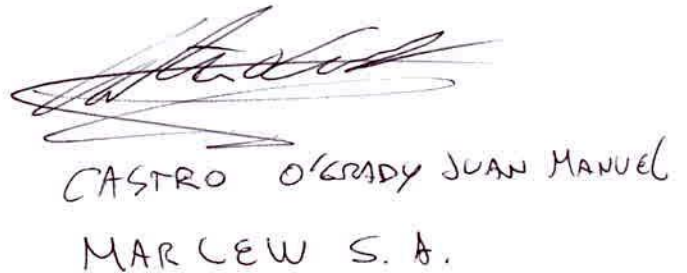 CASTRO O'GRADY JUAN MANUEL
MARLEW S. A.